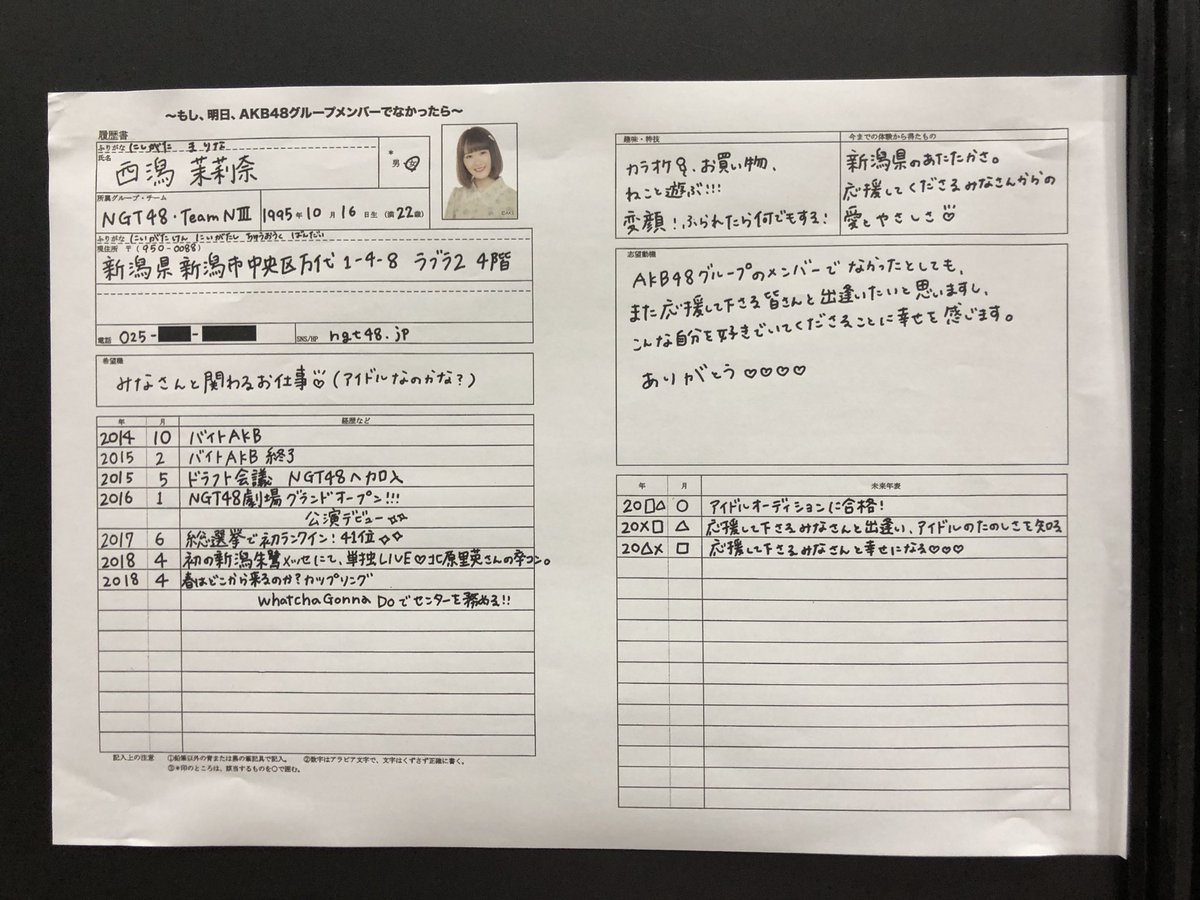 〜もし、明日、AKB48グループメンバーでなかったら〜
履歴書
ふりがな にしがた まりな
氏名 西潟 茉莉奈
*
男 女
所属グループ・チーム
NGT48・TeamNⅢ
1995年10月16日生(満22歳)
ふりがな にいがたけん にいがたし ちゅうおうく ばんだい
現住所 〒(950-0088)
新潟県新潟市中央区万代1-4-8 ラブラ2 4階
電話 025- -
SNS/HP ngt48.jp
希望職
みなさんと関わるお仕事♡(アイドルなのかな?)
年 月 経歴など
2014 10 バイトAKB
2015 2 バイトAKB 終了
2015 5 ドラフト会議 NGT48へ加入
2016 1 NGT48劇場グランドオープン!!!
公演デビュー☆☆
2017 6 総選挙で初ランクイン!41位☆☆
2018 4 初の新潟朱鷺メッセにて、単独LIVE♡北原里英さんの卒コン。
2018 4 春はどこから来るのか?カップリング
WhatchaGonna Doでセンターを務める!!
記入上の注意 ①鉛筆以外の青または黒の筆記具で記入。 ②数字はアラビア文字で、文字はくずさず正確に書く。
③*印のところは、該当するものを○で囲む。
趣味・特技
カラオケ、お買い物、
ねこと遊ぶ!!!
変顔!ふられたら何でもする!
今までの体験から得たもの
新潟県のあたたかさ。
応援してくださるみなさんからの
愛とやさしさ♡
志望動機
AKB48グループのメンバーでなかったとしても、
また応援して下さる皆さんと出逢いたいと思いますし、
こんな自分を好きでいてくださることに幸せを感じます。
ありがとう♡♡♡♡
年 月 未来年表
20□△ ○ アイドルオーディションに合格!
20×□ △ 応援して下さるみなさんと出逢い、アイドルのたのしさを知る
20△× □ 応援して下さるみなさんと幸せになる♡♡♡